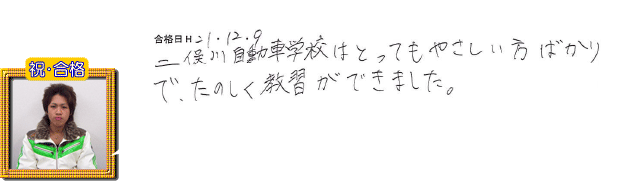 合格日H21.12.9
二俣川自動車学校はとってもやさしい方ばかり
で、たのしく教習ができました。
祝・合格